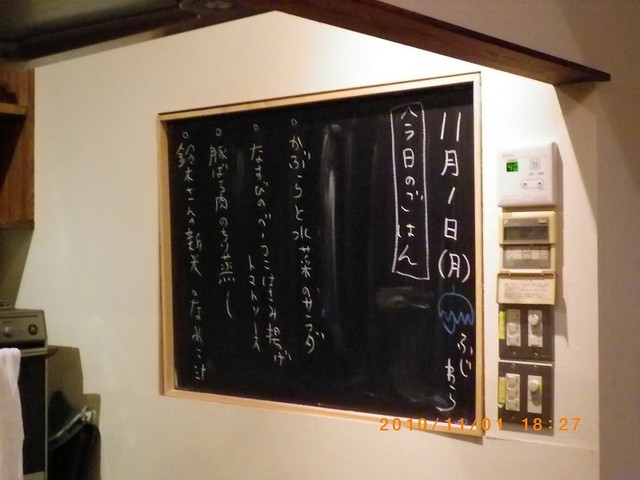 11月1日(月)
ふじ
今日のごはん
・かぶらと水菜のサラダ
・なすびのベーコンはさみ揚げ
トマトソース
・豚ばら肉のせり蒸し
・鈴木さんの新米 なめこ汁
2010/11/01 18:27